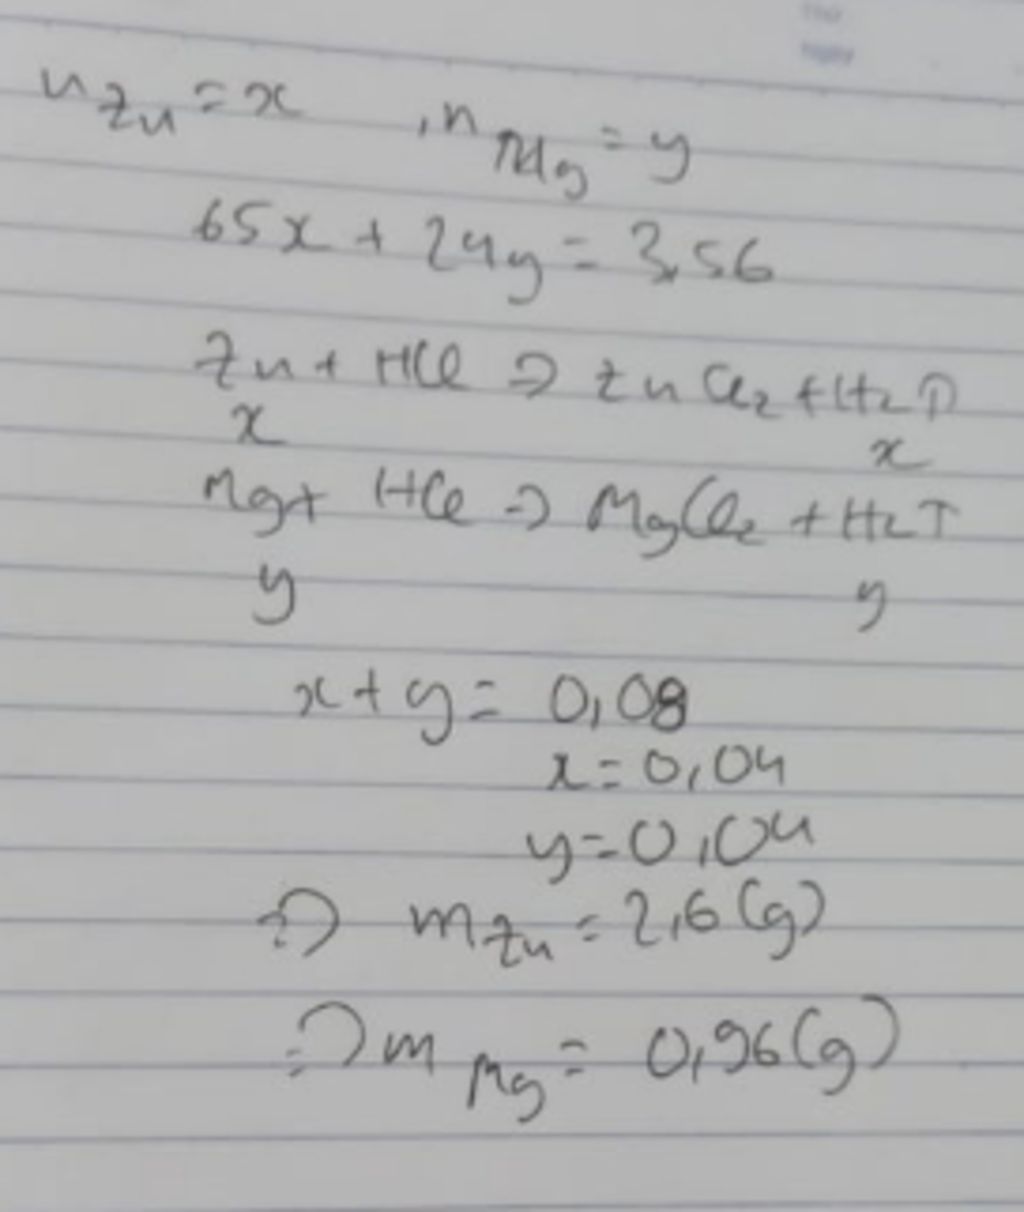 Thứ
Ngày
n Zn = x , n Mg = y
65x + 24y = 3,56
Zn + HCl => ZnCl2 + H2↑
x x
Mg + HCl => MgCl2 + H2↑
y y
x + y = 0,08
x = 0,04
y = 0,04
=> m Zn = 2,6 (g)
=> m Mg = 0,96 (g)